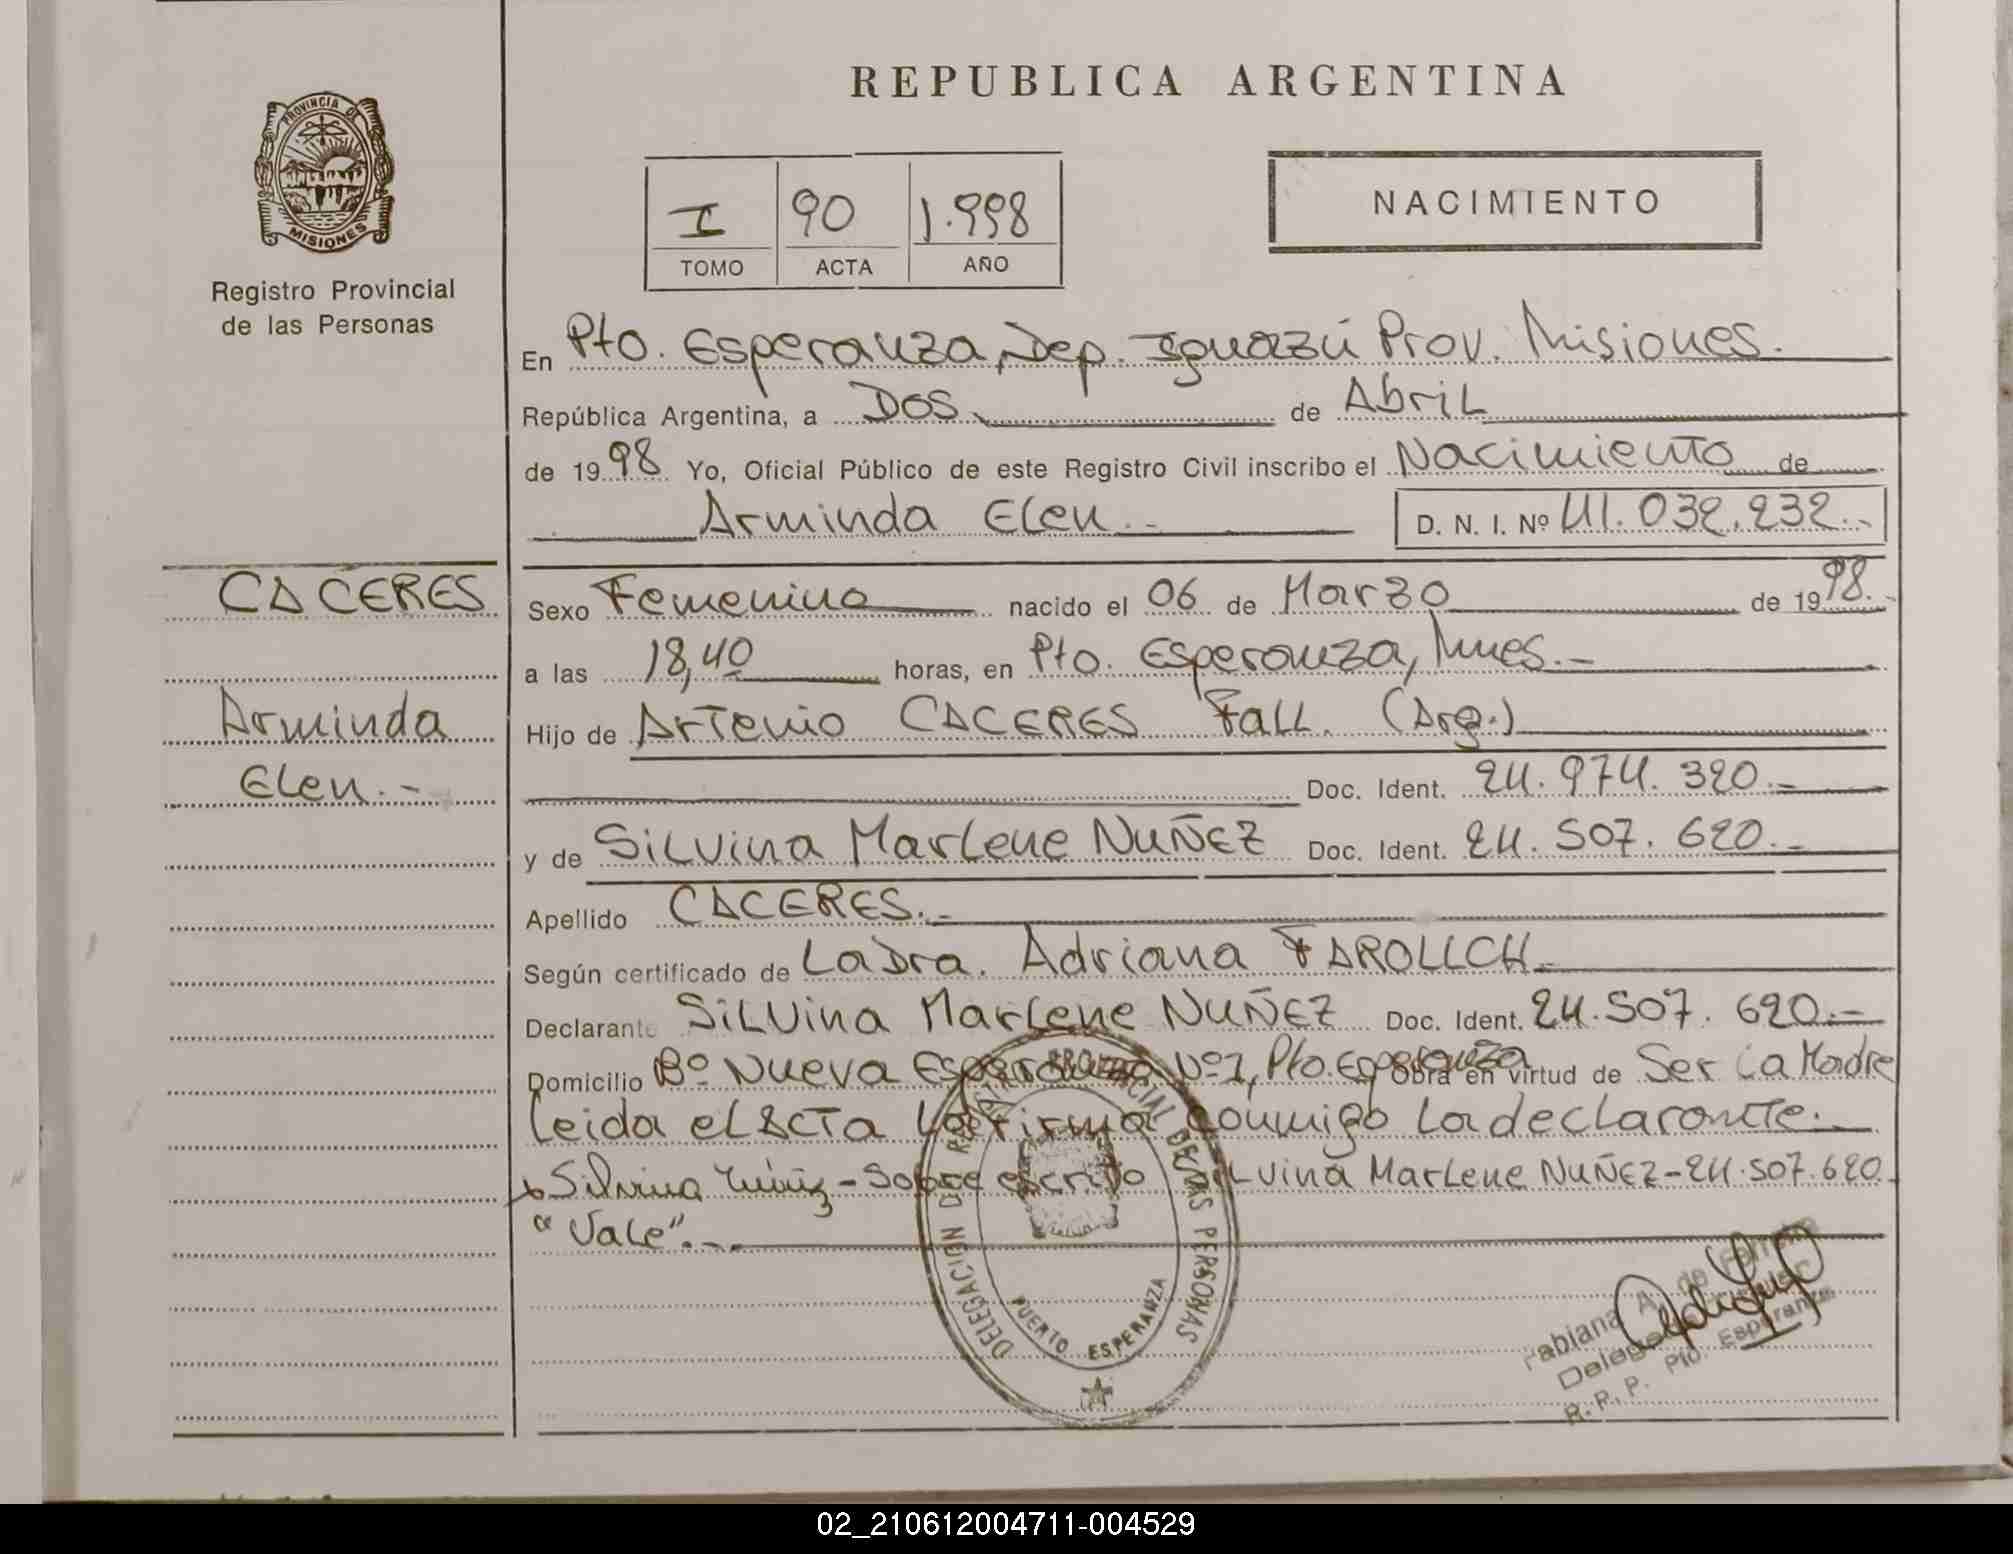 PROVINCIA DE
MISIONES
Registro Provincial
de las Personas
REPUBLICA ARGENTINA
I 90 1.998
TOMO ACTA AÑO
NACIMIENTO
En Pto. Esperanza, Dep. Iguazú Prov. Misiones.
República Argentina, a Dos de Abril
de 1998 Yo, Oficial Público de este Registro Civil inscribo el Nacimiento de
Arminda Elen.- D. N. I. Nº 41.032.232.-
CACERES
Arminda
Elen.-
Sexo Femenino nacido el 06 de Marzo de 1998.-
a las 18,40 horas, en Pto. Esperanza, Mnes.-
Hijo de Artemio CACERES Fall. (Arg.)
Doc. Ident. 24.974.320.-
y de Silvina Marlene NUÑEZ Doc. Ident. 24.507.620.-
Apellido CACERES.-
Según certificado de La Dra. Adriana FAROLLCH.-
Declarante Silvina Marlene NUÑEZ Doc. Ident. 24.507.620.-
Domicilio Bº Nueva Esperanza Nº1, Pto. Esperanza Obra en virtud de Ser La Madre
Leida el Acta La firma conmigo La declarante.-
Silvina Núñez - Sobre escrito Silvina Marlene NUÑEZ-24.507.620
"Vale".-.-
DELEGACION DEL REGISTRO PROVINCIAL DE LAS PERSONAS
PUERTO ESPERANZA
Fabiana A. de
R.P.P. Pto. Esperanza
02_210612004711-004529